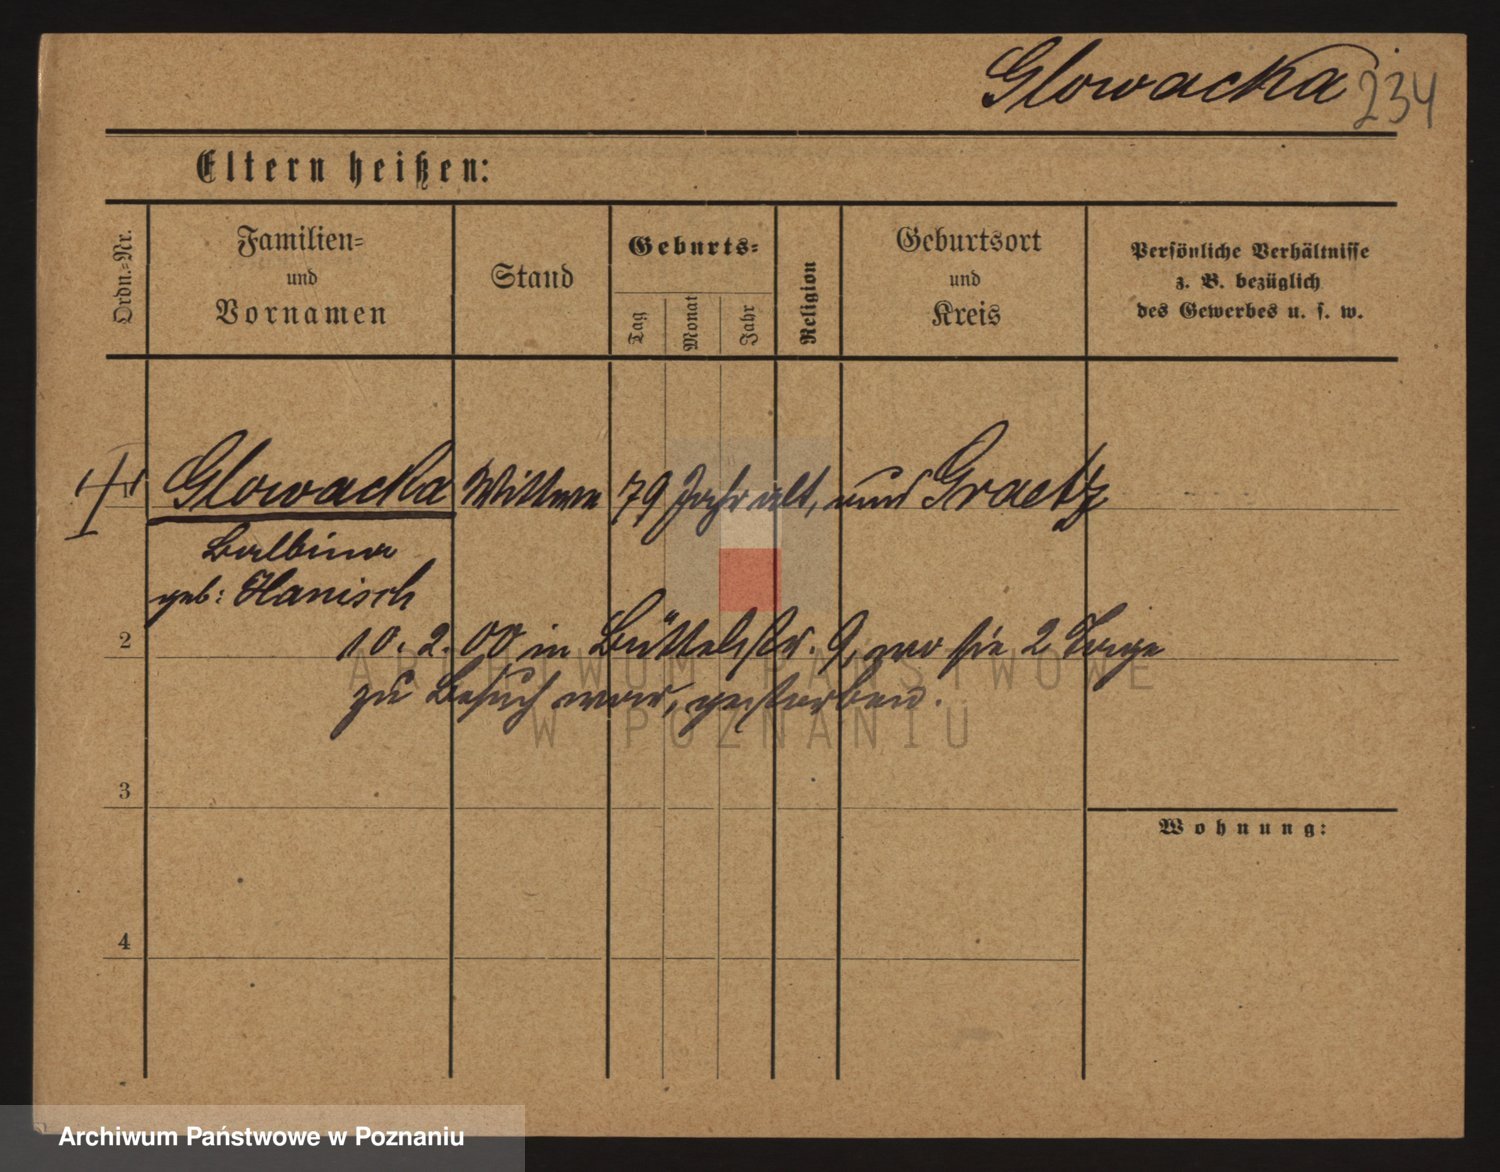 Glowacka 234
Eltern heißen:
Ordn.=Nr.
Familien=
und
Vornamen
Stand
Geburts=
Tag
Monat
Jahr
Religion
Geburtsort
und
Kreis
Persönliche Verhältnisse
z. B. bezüglich
des Gewerbes u. s. w.
Glowacka Wittwe 79 Jahr alt, aus Graetz
Balbina
geb: Hanisch
2
10. 2. 00 in Büttelstr. 9, wo sie 2 Tage
zu Besuch war, gestorben.
ARCHIWUM PAŃSTWOWE
W POZNANIU
3
Wohnung:
4
Archiwum Państwowe w Poznaniu